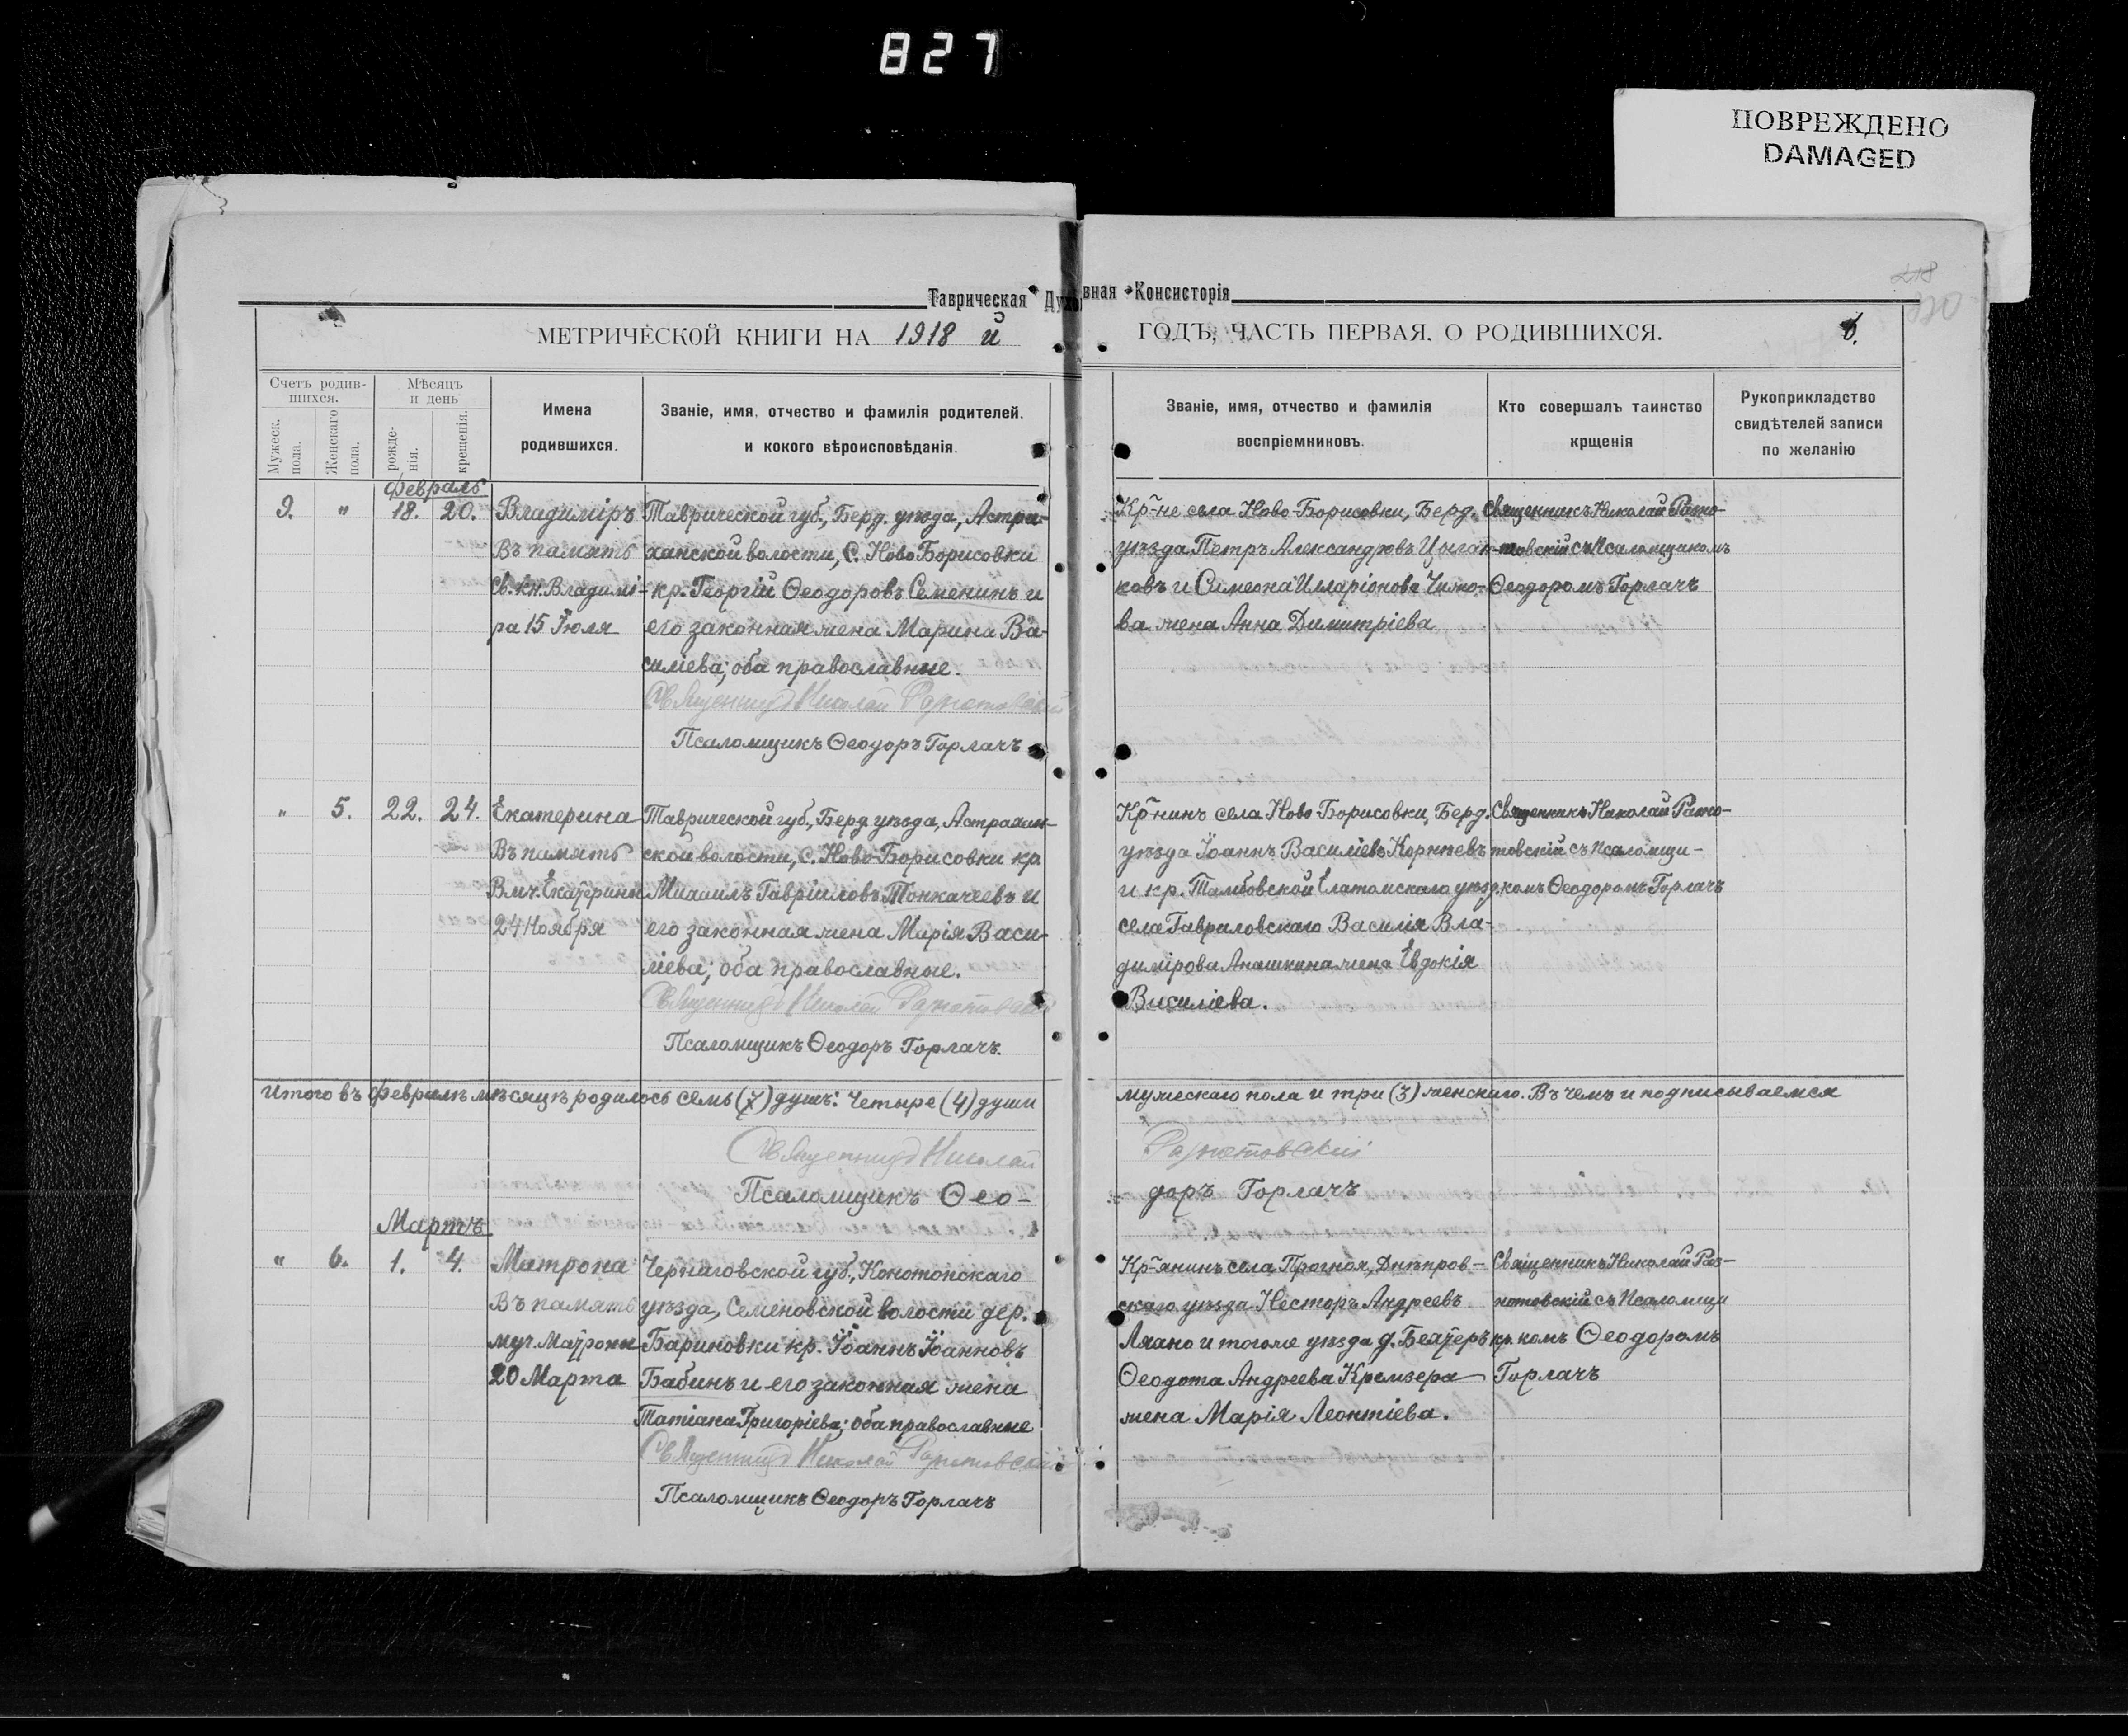 827
ПОВРЕЖДЕНО
DAMAGED
Таврическая Духовная Консисторія
МЕТРИЧЕСКОЙ КНИГИ НА 1918 й ГОДЪ, ЧАСТЬ ПЕРВАЯ. О РОДИВШИХСЯ.
6.
Счетъ родив-
шихся.
Мужеск. пола.
Женскаго пола.
Мѣсяцъ
и день
рожде-
нія.
крещенія.
Имена
родившихся.
Званіе, имя, отчество и фамилія родителей,
и кокого вѣроисповѣданія.
Званіе, имя, отчество и фамилія
воспріемниковъ.
Кто совершалъ таинство
крщенія
Рукоприкладство
свидѣтелей записи
по желанію
Февраль
9. " 18. 20.
Владиміръ
Въ память
Св. кн. Владимі-
ра 15 Іюля
Таврической губ., Берд. уѣзда, Астра-
ханской волости, С. Ново Борисовки
кр. Георгій Ѳеодоровъ Семенинъ и
его законная жена Марина Ва-
силіева; оба православные.
Священникъ Николай
Псаломщикъ Ѳеодоръ Горлачъ
Кр-не села Ново-Борисовки, Берд.
уѣзда Петръ Александровъ Цыган-
ковъ и Симеона Илларіонова
ва жена Анна Димитріева
Священникъ Николай
товскій съ Псаломщикомъ
Ѳеодоромъ Горлачъ
" 5. 22. 24.
Екатерина
Въ память
Вмч. Екатерины
24 Ноября
Таврической губ., Берд. уѣзда, Астрахан-
ской волости, С. Ново Борисовки кр.
Михаилъ Гавріиловъ Тонкачеевъ и
его законная жена Марія Васи-
ліева; оба православные.
Священникъ Николай
Псаломщикъ Ѳеодоръ Горлачъ.
Кр-нинъ села Ново-Борисовки, Берд.
уѣзда Іоаннъ Василіевъ Корнѣевъ
и кр. Тамбовской Елатомскаго уѣзд.
села Гавриловскаго Василія Вла-
димірова Анашкина жена Евдокія
Василіева.
Священникъ Николай
товскій съ Псаломщи-
комъ Ѳеодоромъ Горлачъ
Итого въ Февралѣ мѣсяцѣ родилось семь (7) душъ: Четыре (4) души мужескаго пола и три (3) женскаго. Въ чемъ и подписываемся
Священникъ Николай
Псаломщикъ Ѳео- доръ Горлачъ
Мартъ
" 6. 1. 4.
Матрона
Въ память
муч. Матроны
20 Марта
Черниговской губ., Конотопскаго
уѣзда, Семеновской волости дер.
Бариновки кр. Іоаннъ Іоанновъ
Бабинъ и его законная жена
Татіана Григоріева; оба православные
Священникъ Николай
Псаломщикъ Ѳеодоръ Горлачъ
Кр-янинъ села Прогноя, Днѣпров-
скаго уѣзда Несторъ Андреевъ
и тогоже уѣзда д. Бехтеръ кр.
Ѳеодота Андреева Кремзера
жена Марія Леонтіева.
Священникъ Николай Раз-
нотовскій съ Псаломщи
комъ Ѳеодоромъ
Горлачъ